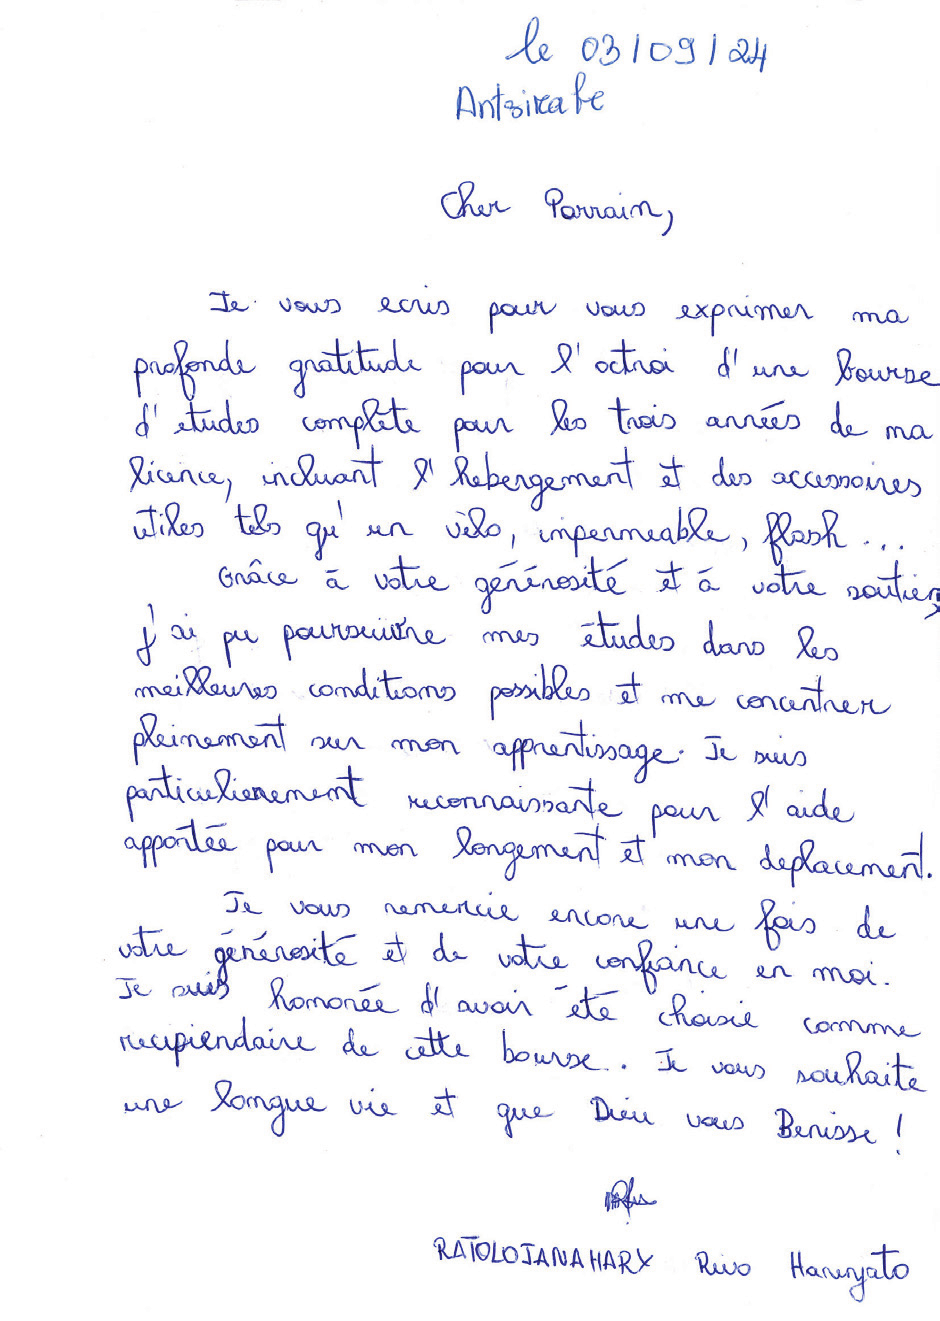 le 03/09/24
Antsirabe
Cher Parrain,
Je vous ecris pour vous exprimer ma
profonde gratitude pour l'octroi d'une bourse
d'études complète pour les trois années de ma
licence, incluant l'hebergement et des accessoires
utiles tels qu'un vélo, impermeable, flash...
Grâce à votre générosité et à votre soutien,
j'ai pu poursuivre mes études dans les
meilleures conditions possibles et me concentrer
pleinement sur mon apprentissage. Je suis
particulierement reconnaissante pour l'aide
apportée pour mon longement et mon deplacement.
Je vous remercie encore une fois de
votre générosité et de votre confiance en moi.
Je suis honorée d'avoir été choisie comme
recipiendaire de cette bourse. Je vous souhaite
une longue vie et que Dieu vous Benisse !
RATOLOJANAHARY Rivo Harenjato